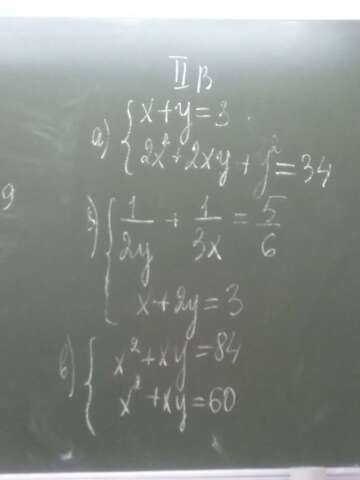 II в
а) { x + y = 3
2x² + 2xy + y² = 34
9
б) { 1/2y + 1/3x = 5/6
x + 2y = 3
в) { x² + xy = 84
x² + xy = 60